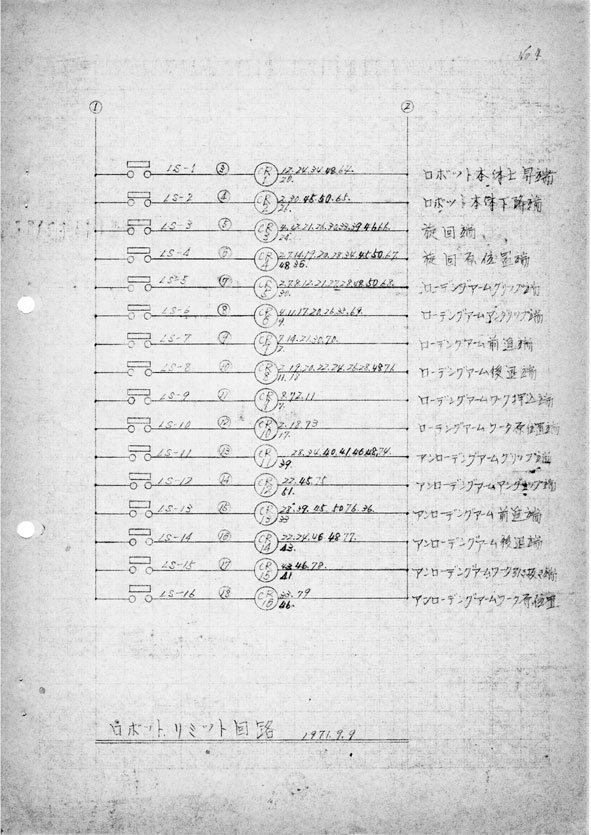 ① ②
LS-1 ③ CR 1 12.24.34.48.64. ロボット本体上昇端
20.
LS-2 ④ CR 2 2.30.45.50.65. ロボット本体下降端
21.
LS-3 ⑤ CR 3 旋回端
LS-4 ⑥ CR 4 2.7.14.19.20.28.34.45.50.67. 旋回原位置端
48.36.
LS-5 ⑦ CR 5 2.7.8.12.21.27.28.48.50.68. ローデングアームグリップ端
30.
LS-6 ⑧ CR 6 4.11.17.20.26.33.69. ローデングアームアングリップ端
9.
LS-7 ⑨ CR 7 7.14.21.30.70. ローデングアーム前進端
2.
LS-8 ⑩ CR 8 2.19.20.22.24.26.28.48.71 ローデングアーム後退端
11.18
LS-9 ⑪ CR 9 8.72.11 ローデングアームワーク押込端
7.
LS-10 ⑫ CR 10 2.18.73 ローデングアームワーク原位置端
17.
LS-11 ⑬ CR 11 28.34.40.41.46.48.74. アンローデングアームグリップ端
39.
LS-12 ⑭ CR 12 22.45.75 アンローデングアームアングリップ端
51.
LS-13 ⑮ CR 13 28.39.45.50.76.36. アンローデングアーム前進端
33
LS-14 ⑯ CR 14 22.24.46.48.77. アンローデングアーム後退端
43.
LS-15 ⑰ CR 15 43.46.78. アンローデングアームワーク引抜き端
41
LS-16 ⑱ CR 16 33.79 アンローデングアームワーク原位置
46.
ロボットリミット回路 1971.9.9